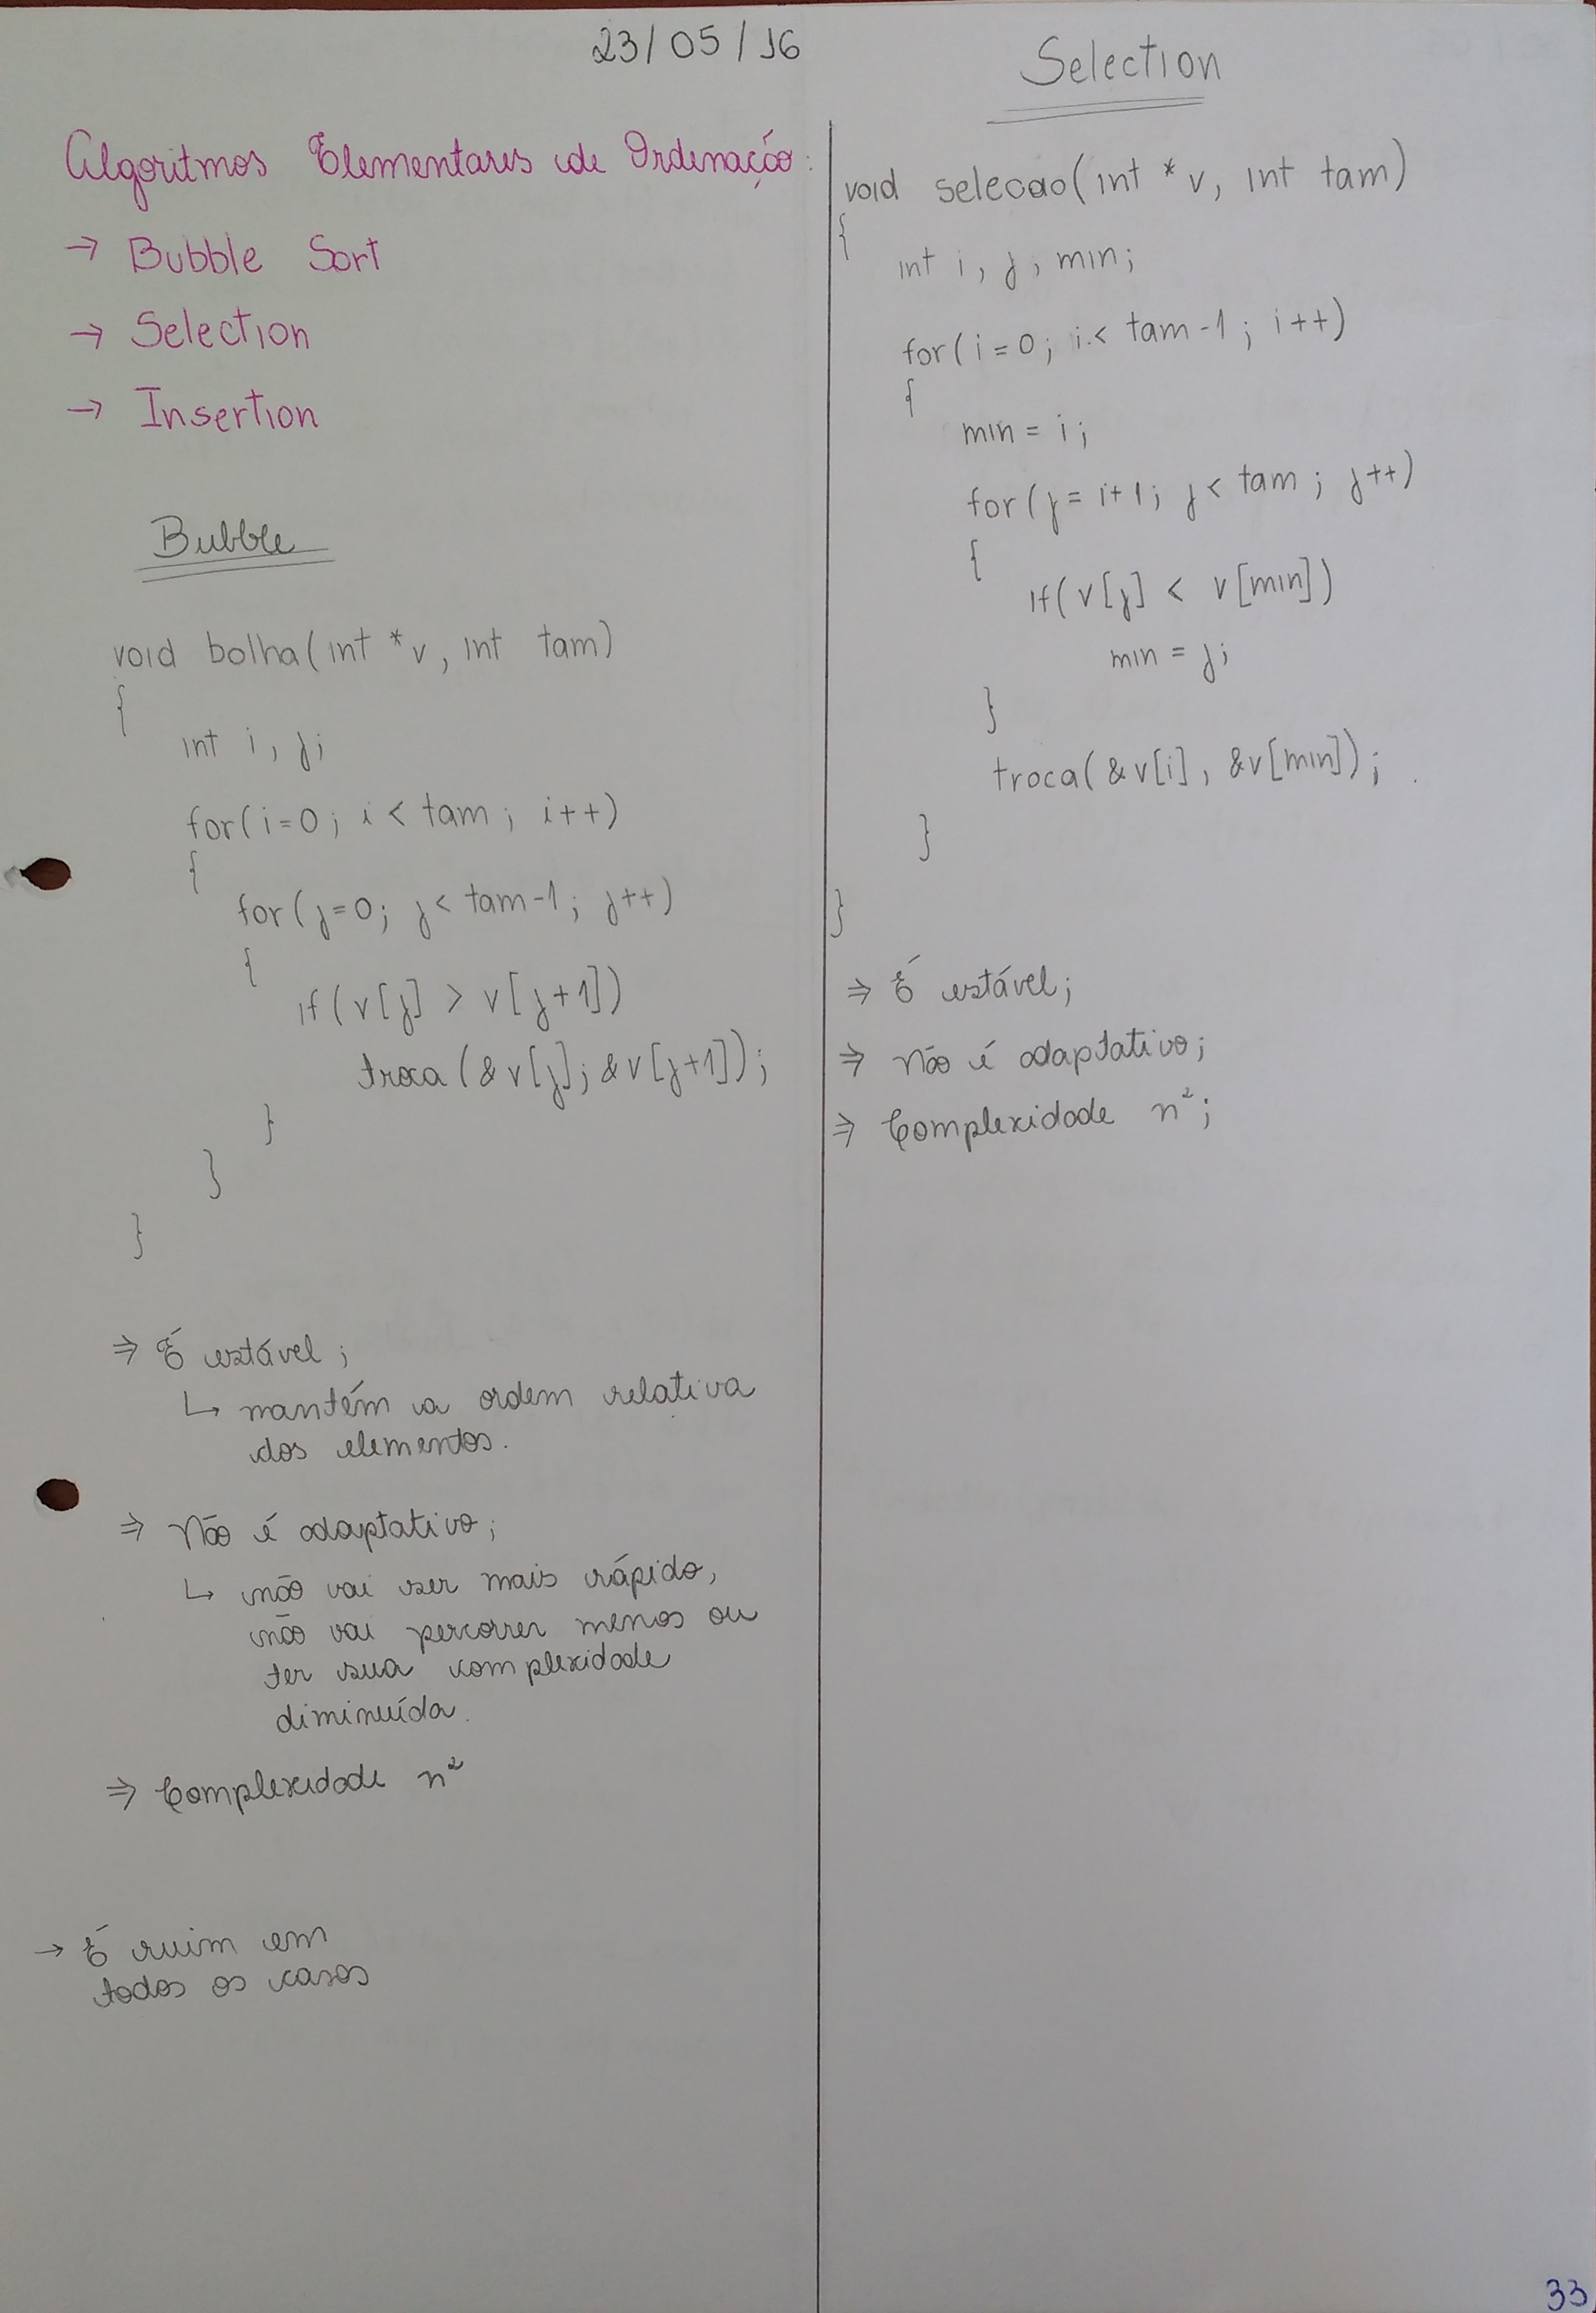 23/05/16
Algoritmos Elementares de Ordenação:
→ Bubble Sort
→ Selection
→ Insertion
Bubble
void bolha(int *v, int tam)
{
int i, j;
for(i=0; i < tam; i++)
{
for(j=0; j < tam-1; j++)
{
if(v[j] > v[j+1])
troca(&v[j]; &v[j+1]);
}
}
}
⇒ É estável;
↳ mantém a ordem relativa
dos elementos.
⇒ Não é adaptativo;
↳ não vai ser mais rápido,
não vai percorrer menos ou
ter sua complexidade
diminuída.
⇒ Complexidade n²
→ É ruim em
todos os casos
Selection
void selecao(int *v, int tam)
{
int i, j, min;
for(i=0; i < tam-1; i++)
{
min = i;
for(j = i+1; j < tam; j++)
{
if(v[j] < v[min])
min = j;
}
troca(&v[i], &v[min]);
}
}
⇒ É estável;
⇒ Não é adaptativo;
⇒ Complexidade n²;
33